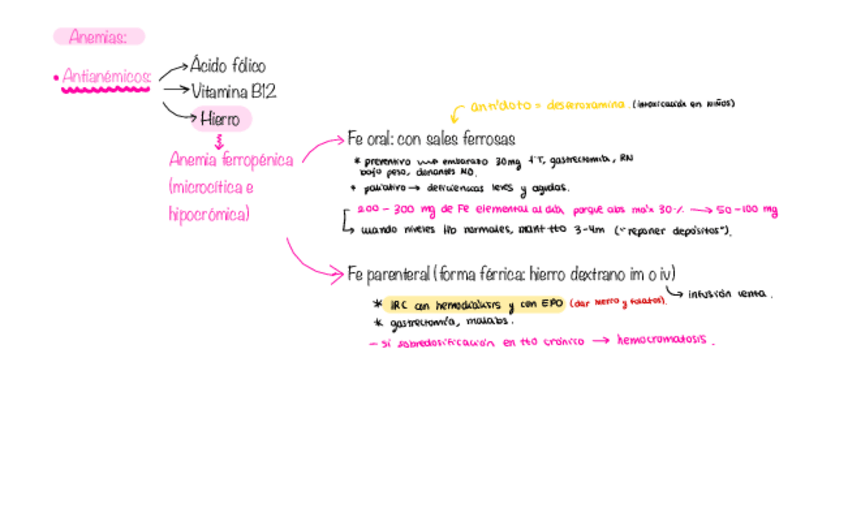 Anemias:
• Antianémicos:
Ácido fólico
Vitamina B12
Hierro
Anemia ferropénica
(microcítica e
hipocrómica)
antídoto = deseroxamina. (intoxicación en niños)
Fe oral: con sales ferrosas
* preventivo embarazo 30mg gastrectomía, RN
bajo peso, donantes NO.
* paliativo → deficiencias leves y agudas.
200 - 300 mg de Fe elemental al día, porque abs máx 30% → 50-100 mg
→ cuando niveles Hb normales, mant tto 3-4m ("reponer depósitos").
Fe parenteral (forma férrica: hierro dextrano im o iv)
→ infusión lenta.
* IRC con hemodiálisis y con EPO (dar hierro y folatos).
* gastrectomía, malabs.
- si sobredosificación en tto crónico → hemocromatosis.